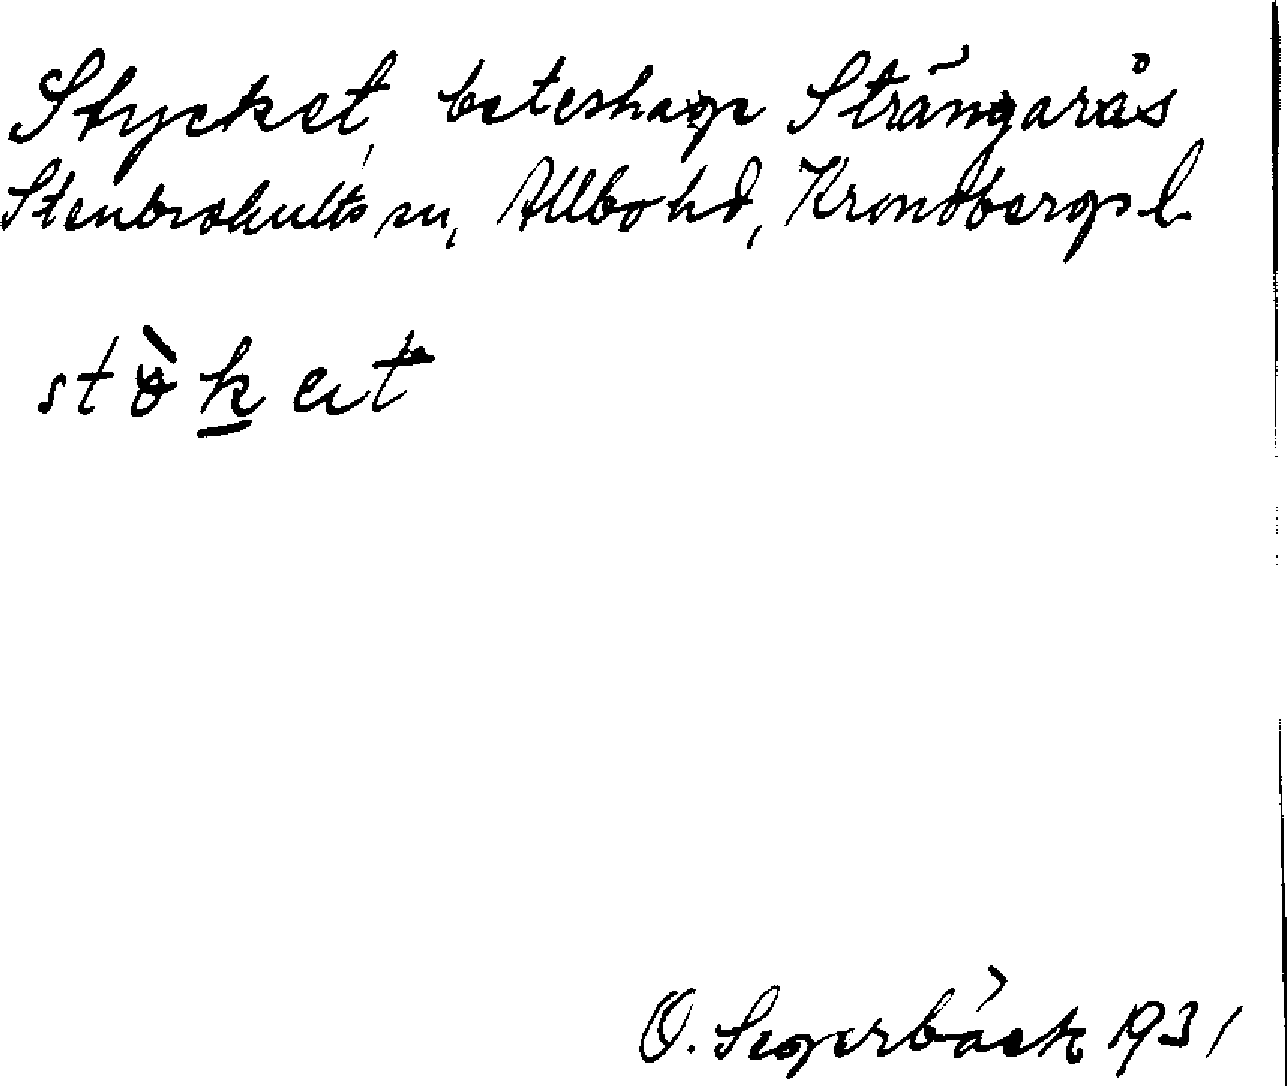 Stycket, beteshage Strängarås
Stenbrohults sn, Allbo hd, Kronobergs l.
stö̀k et
O. Segerbäck 1931